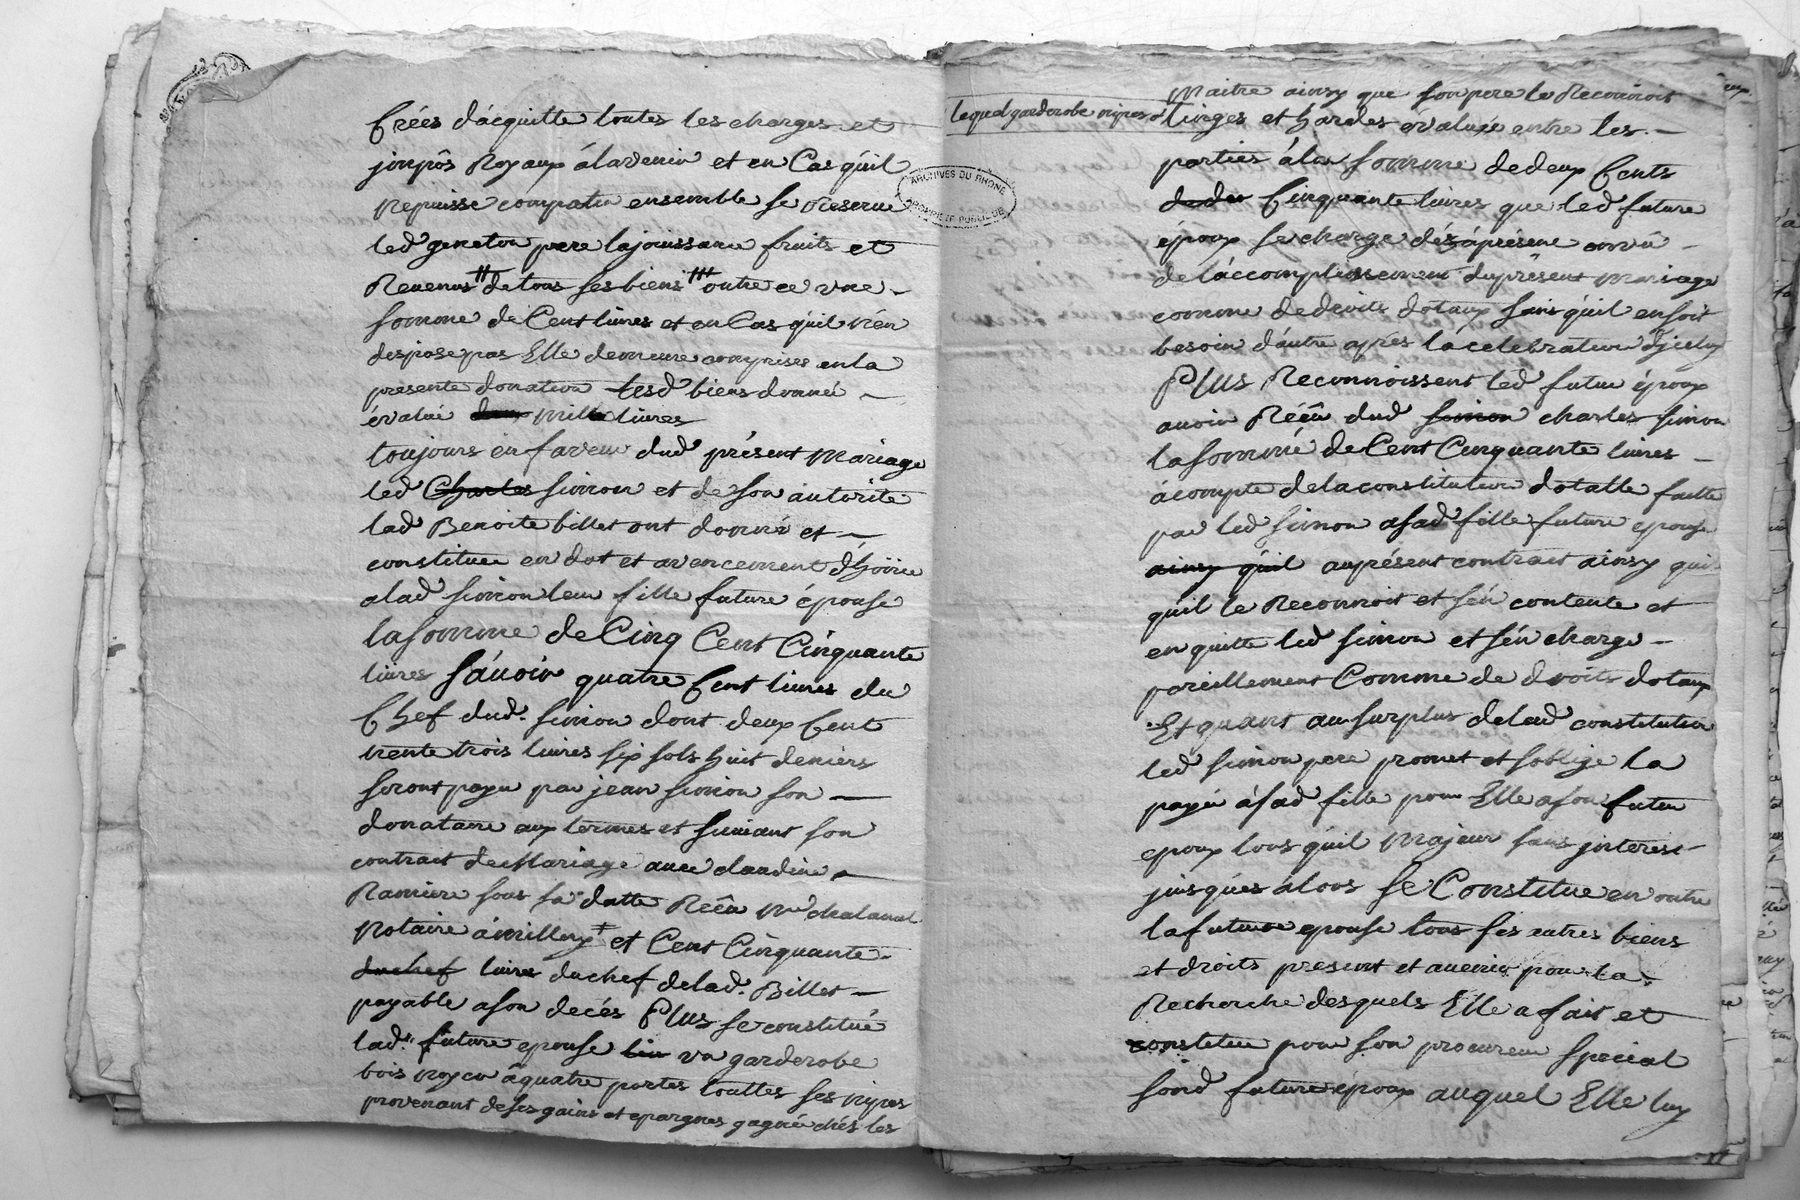 Créés d'acquitté toutes les charges et
jmpôs Royaux á lavenir et en Cas quil
Ne puisse compatir ensemble se Reserve
led geneton pere la jouissance fruits et
Revenus # de tous ses biens # outre ce une
somme de Cent livres et en Cas quil n'en
dispose pas Elle demeure comprises en la
presente donation lesd biens donné
évalué deux mille livres
toujours en faveur dud présent Mariage
led Charles simon et de son autorité
lad Benoite billet ont donné et
constitué en dot et avencement d'hoirie
a lad simon leur fille future épouse
la somme de Cinq Cent Cinquante
livres sávoir quatre Cent livres du
Chef dud. simon dont deux Cent
trente trois livres six sols huit deniers
seront payé par jean simon son
donataire aux termes et suivant son
contract de Mariage avec claudine
Ramiere sous sa datte Réču Me chalamel
Notaire á millery + et Cent Cinquante
du chef livres du chef de lad. Billet
payable a son decés Plus se constitué
lad. future epouse un garderobe
bois noyer á quatre portes touttes ses nipes
provenant de ses gains et epargnes gagnée chés les
ARCHIVES DU RHONE
PROPRIÉTÉ PUBLIQUE
Maitre ainsy que son pere le Reconnoit
lequel garderobe nipes et linges et hardes évaluée entre les
parties á la somme de deux Cents
Cinquante livres que led future
époux se charge dés áprésent
de l'áccomplissement du présent mariage
comme de droits dotaux sans quil en soit
besoin d'autre aprés la celebration d'jceluy
Plus Reconnoissent led futur époux
avoir Réču dud simon charles simon
la sommé de Cent Cinquante livres
á compte de la constitution dotalle faitte
par led simon a sad fille future epouse
ainsy quil au présent contract ainsy qui
quil le Reconnoit et s'en contente et
en quitte led simon et s'en charge
pareillement Comme de droits dotaux
Et quant au surplus de lad constitution
led simon pere promet et soblige la
payér á sad fille pour Elle a son futur
epoux lors quil Majeur sans jnterest
jusqués álors se Constitue en outre
la future epouse tous ses autres biens
et droits present et avenir pour la
Recherche desquels Elle a fait et
constitué pour son procureur special
sond future époux auquel Elle luy